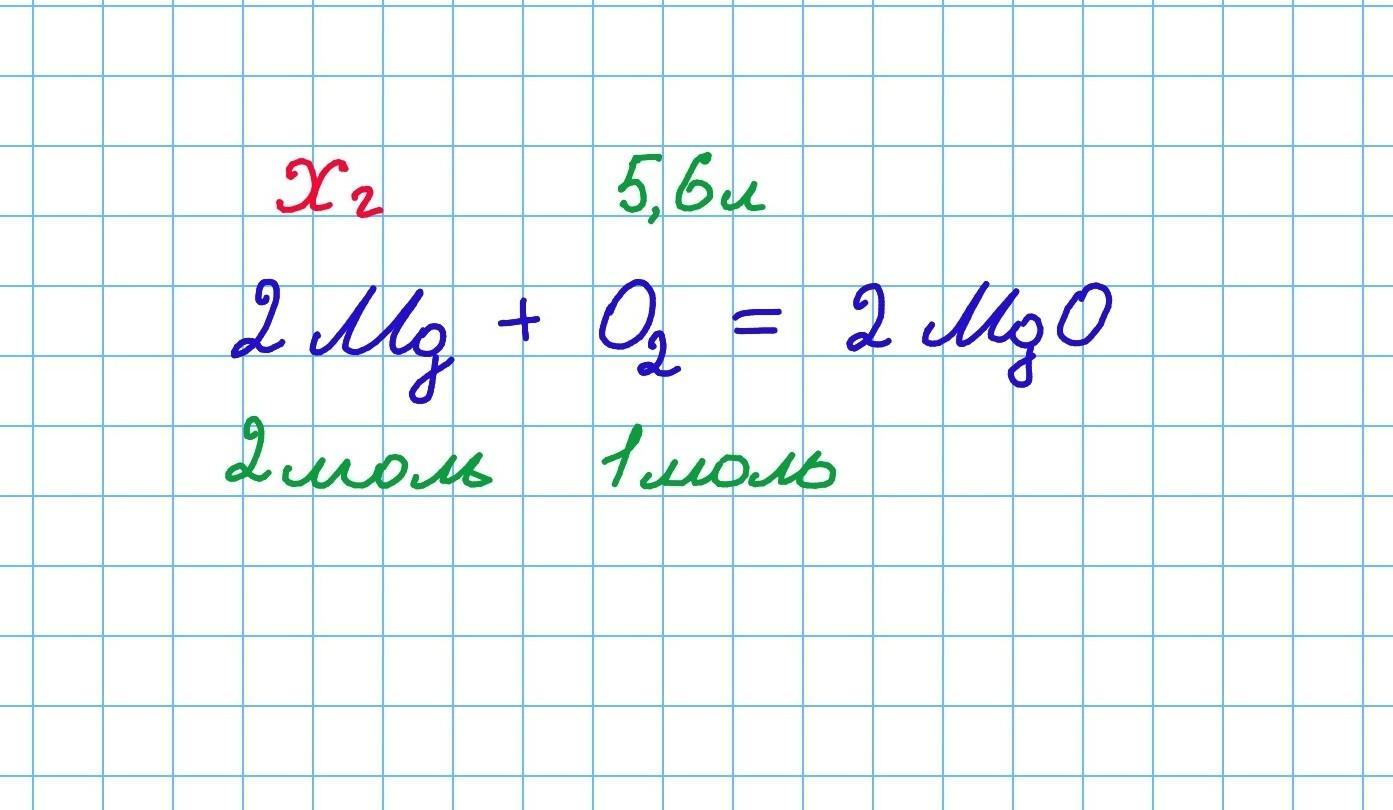 х г 5,6 л
2 Mg + O₂ = 2 MgO
2 моль 1 моль